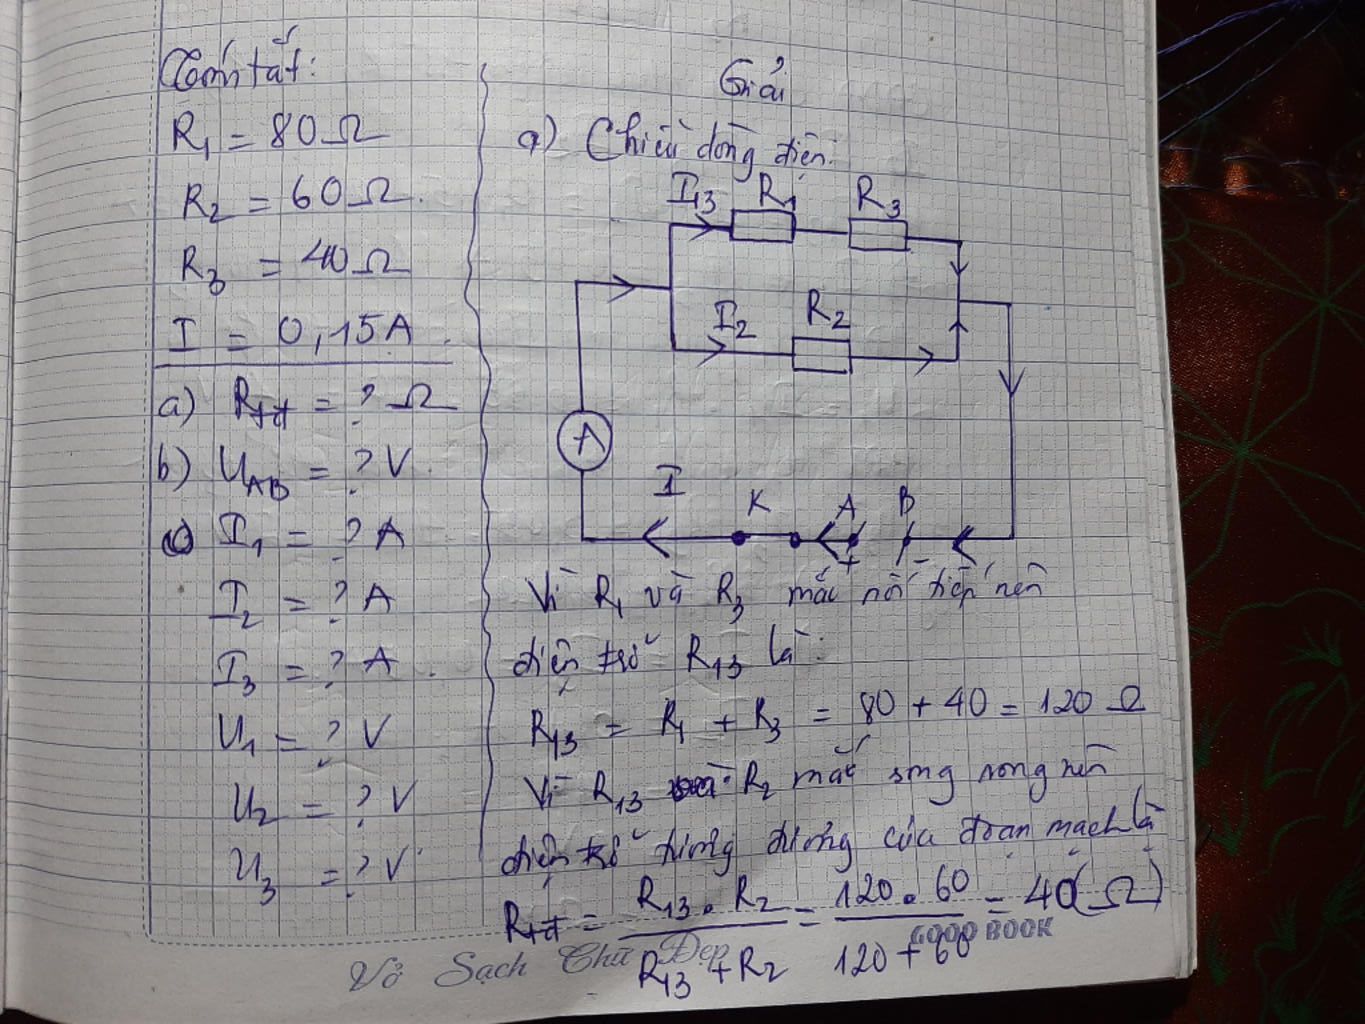 Tóm tắt:
R₁ = 80Ω
R₂ = 60Ω.
R₃ = 40Ω
I = 0,15A.
a) Rtđ = ? Ω
b) UAB = ? V.
c) I₁ = ? A
I₂ = ? A
I₃ = ? A.
U₁ = ? V
U₂ = ? V
U₃ = ? V
Giải
a) Chiều dòng điện:
I₁₃ R₁ R₃
I₂ R₂
A
I K A B
+ -
Vì R₁ và R₃ mắc nối tiếp nên
điện trở R₁₃ là:
R₁₃ = R₁ + R₃ = 80 + 40 = 120 Ω
Vì R₁₃ và R₂ mắc song song nên
điện trở tương đương của đoạn mạch là
Rtđ = R₁₃ . R₂ / R₁₃ + R₂ = 120 . 60 / 120 + 60 = 40(Ω)
Vở Sạch Chữ Đẹp
GOOD BOOK